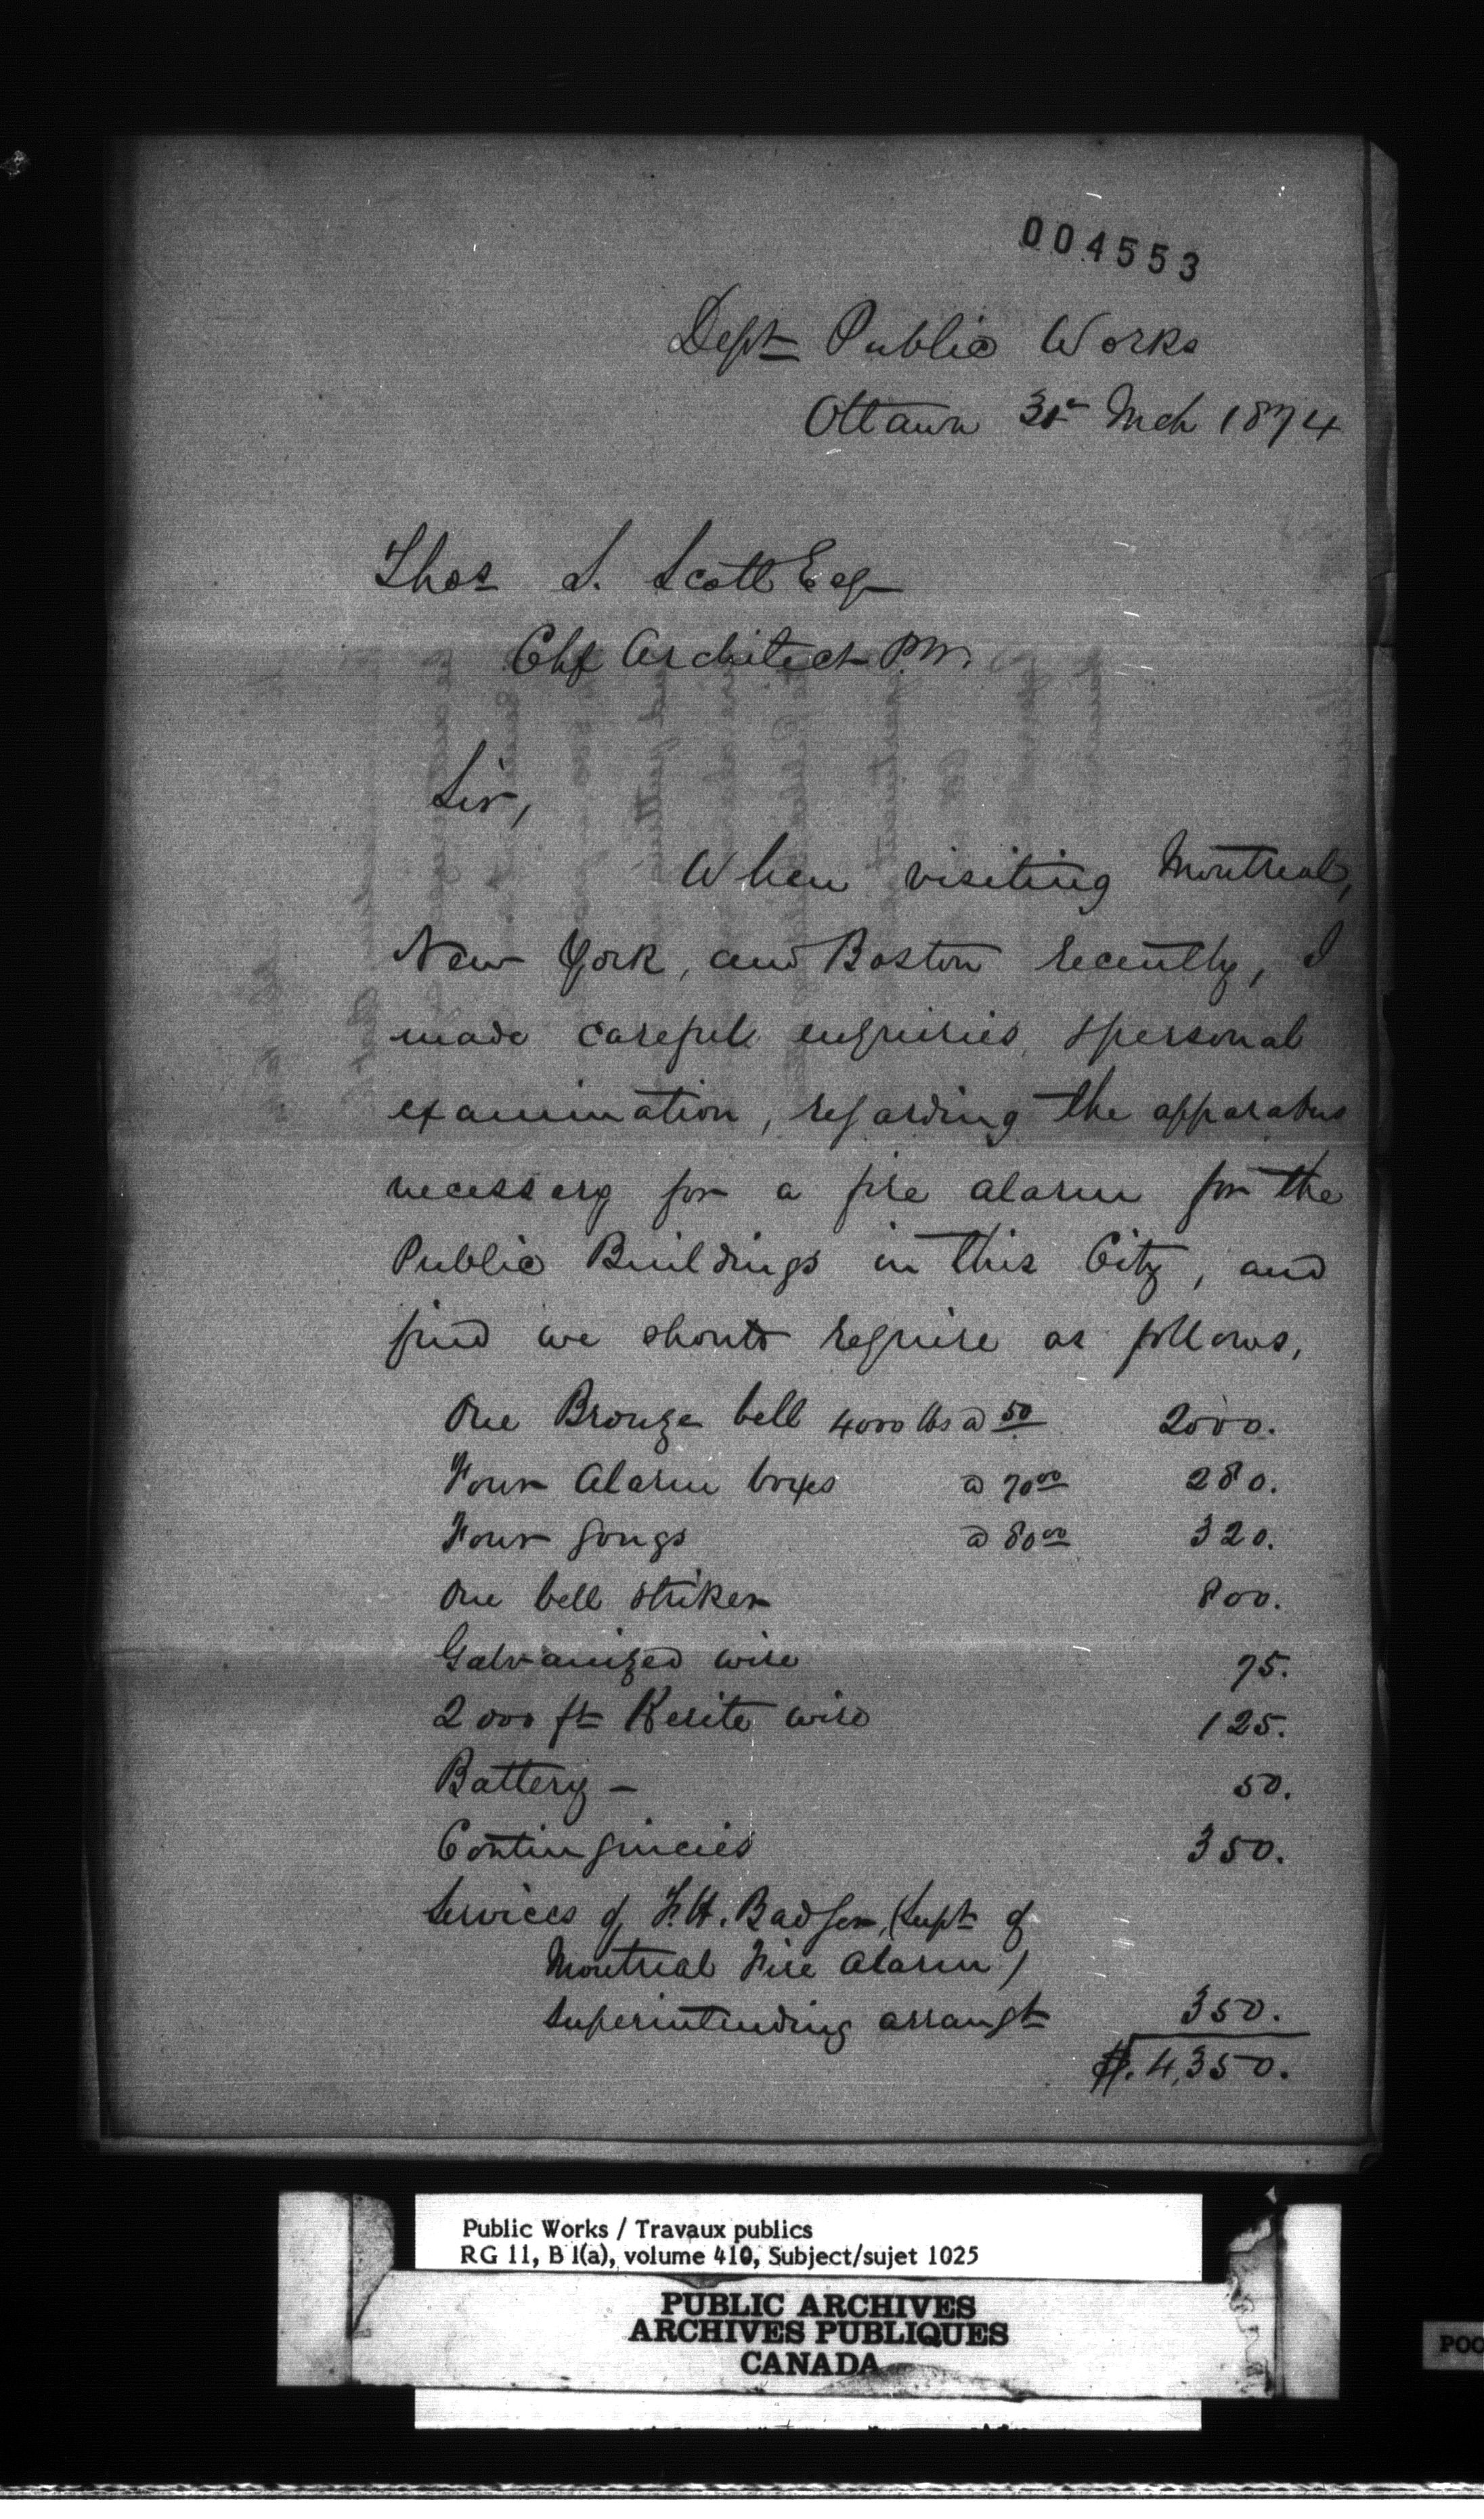 004553
Dept Public Works
Ottawa 31st Mch 1874
Thos S. Scott Esq
Chf Architect P.W.
Sir,
When visiting Montreal,
New York, and Boston recently, I
made carefull enquiries, & personal
examination, regarding the apparatus
necessary for a fire alarm for the
Public Buildings in this City, and
find we should require as follows,
One Bronze bell 4000 lbs @ 50 2000.
Four Alarm boxes @ 70.00 280.
Four gongs @ 80.00 320.
One bell striker 800.
Galvanized wire 75.
2000 ft Kerite wire 125.
Battery – 50.
Contingincies 350.
Services of F.H. Badger, (Supt of
Montreal Fire Alarm)
Superintending arrangt 350.
$. 4,350.
Public Works / Travaux publics
RG 11, B 1(a), volume 410, Subject/sujet 1025
PUBLIC ARCHIVES
ARCHIVES PUBLIQUES
CANADA